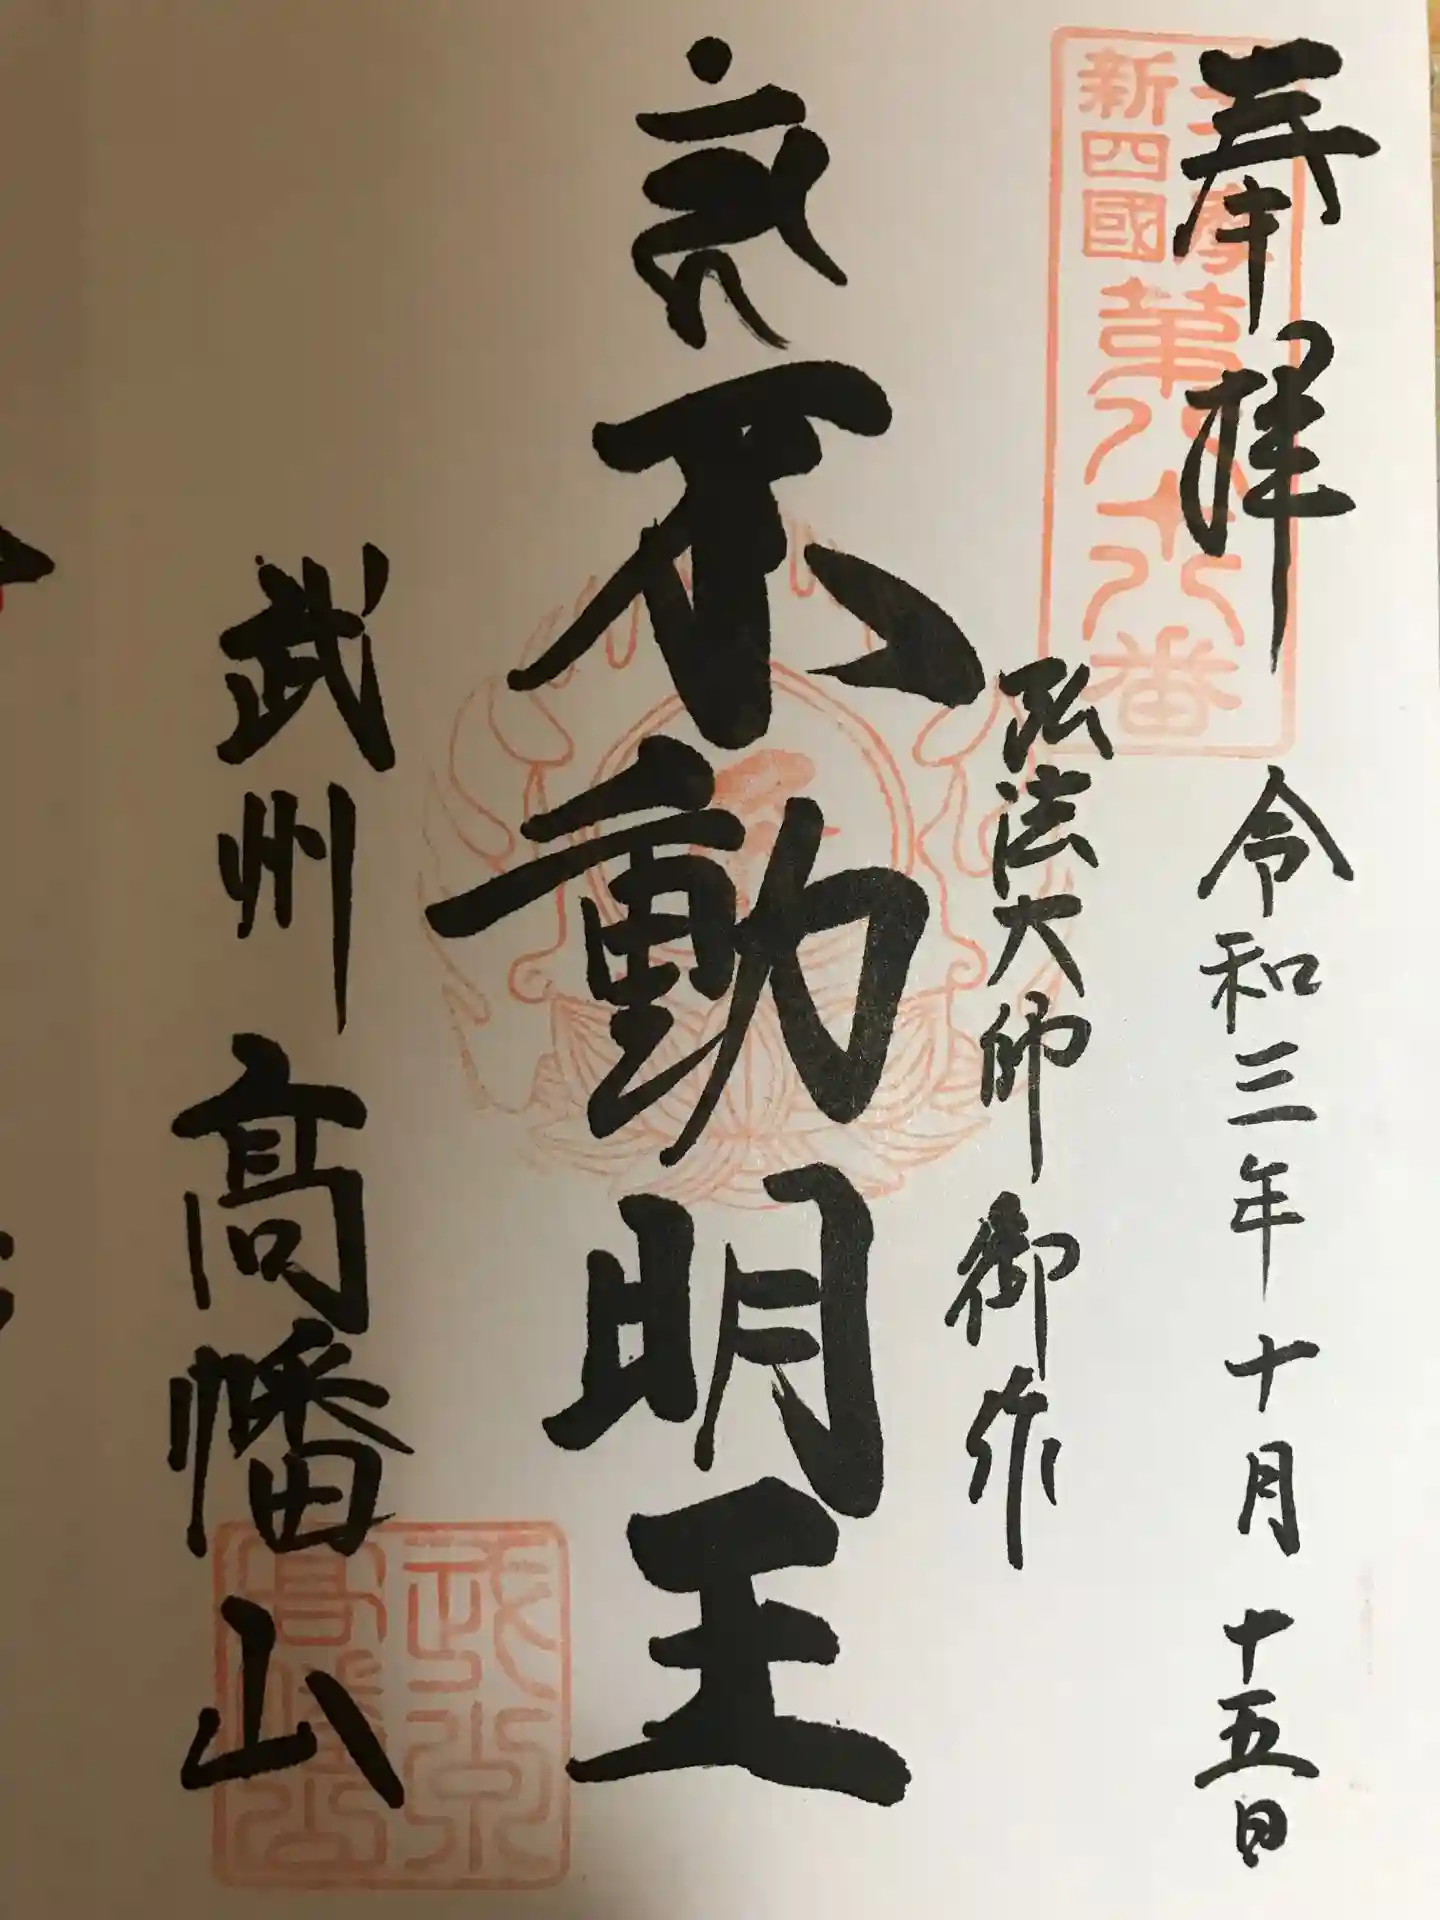 奉拝
令和三年十月十五日
新四國
第八十八番
弘法大師御作
不動明王
武州高幡山